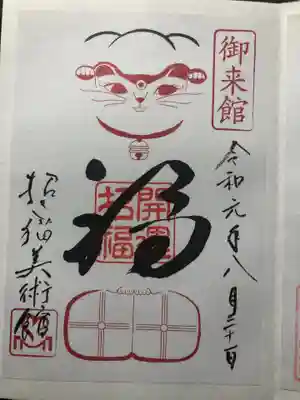 御来館
令和元年八月二十日
開運
招福
福
招猫美術館